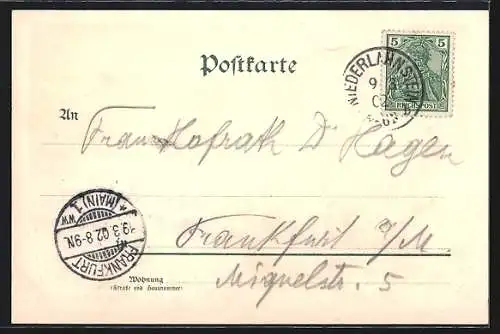 Postkarte
5 5
REICHSPOST
NIEDERLAHNSTEIN
9
02
An
Frau Hofrath Dr Hagen
* (MAIN) 1
WW
19.3.02.8-9N.
FRANKFURT
Frankfurt a/M
Miquelstr. 5
Wohnung
(Straße und Hausnummer)